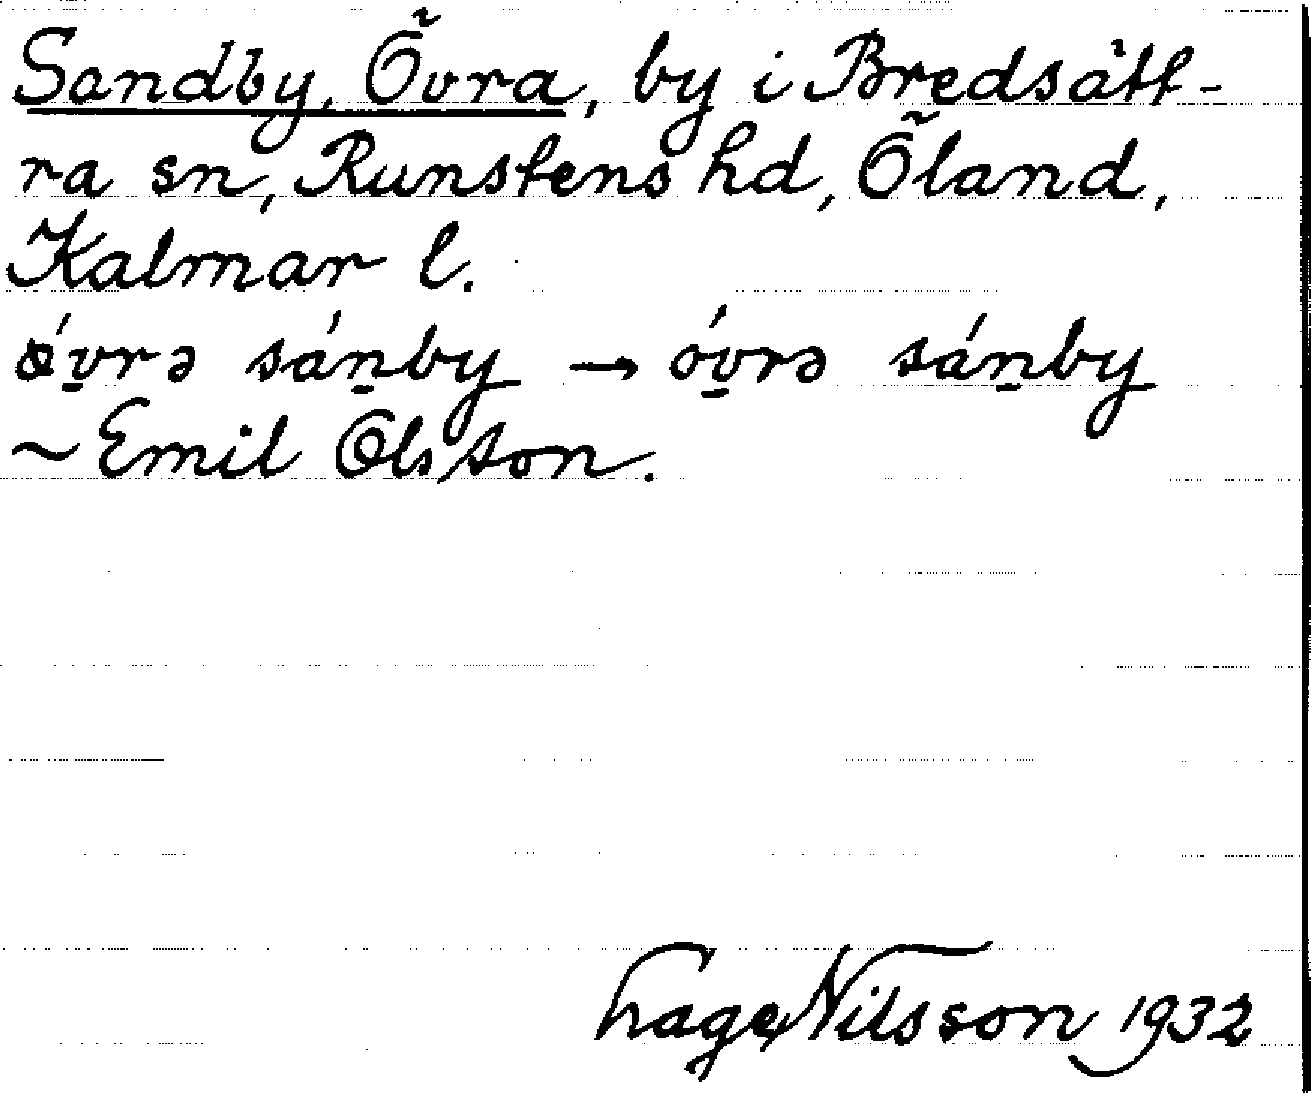 Sandby, Övra, by i Bredsätt-
ra sn, Runstens hd, Öland,
Kalmar l.
ǿv̠rə sán̠by → óv̠rə sán̠by
~ Emil Olsson.
Hage Nilsson 1932